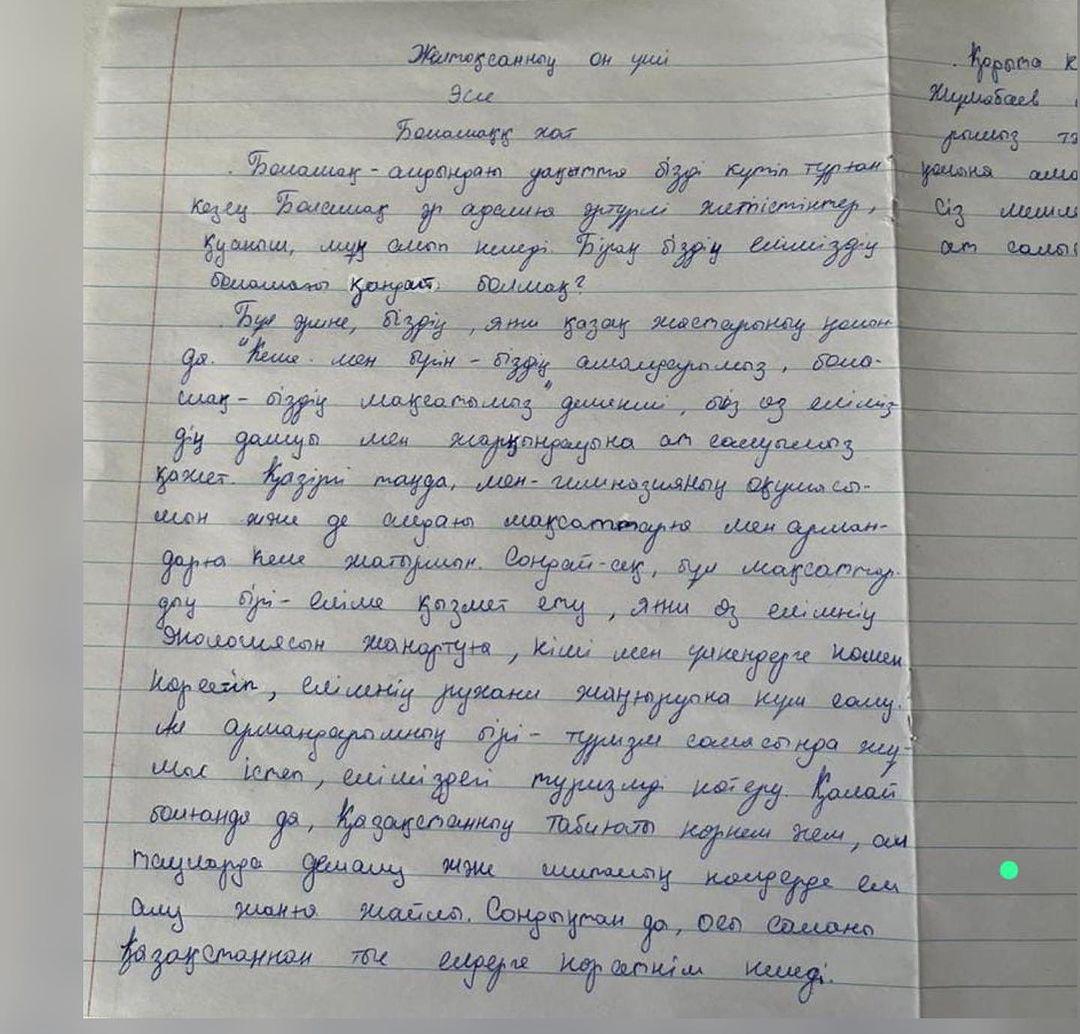 Желтоқсанның он үші
Эссе
Болашаққ хат
Болашақ - алдындағы уақытта бізді күтіп тұрған
кезең Болашақ әр адамға әртүрлі жетістіктер,
қуаныш, мұң алып келеді. Бірақ біздің еліміздің
болашағы қандай болмақ?
Бұл әрине, біздің, яғни қазақ жастарының қолын-
да. "Кеше мен бүгін - біздің амалдарымыз, бола-
шақ - біздің мақсатымыз" демекші, біз өз еліміз-
дің дамуы мен жарқындауына ат салуымыз
қажет. Қазіргі таңда, мен - гимназияның оқушысы-
мын және де алдағы мақсаттарға мен арман-
дарға келе жатырмын. Сондай-ақ, бұл мақсаттар-
дың бірі - еліме қызмет ету, яғни өз елімнің
экологиясын жаңартуға, кіші мен үлкендерге көмек
көрсетіп, елімнің рухани жаңғыруына күш салу.
Ал армандарымның бірі - туризм саласында жұ-
мыс істеп, еліміздегі туризмді көтеру. Қалай
болғанда да, Қазақстанның табиғаты көркем жем, ал
тауларда демалу және шипалық көлдерде ем
алу жанға жайлы. Сондықтан да, осы саланы
Қазақстаннан тыс елдерге көрсеткім келеді.
Қорыта к
Жұмабаев
рымыз
қолына
Сіз
ат салы